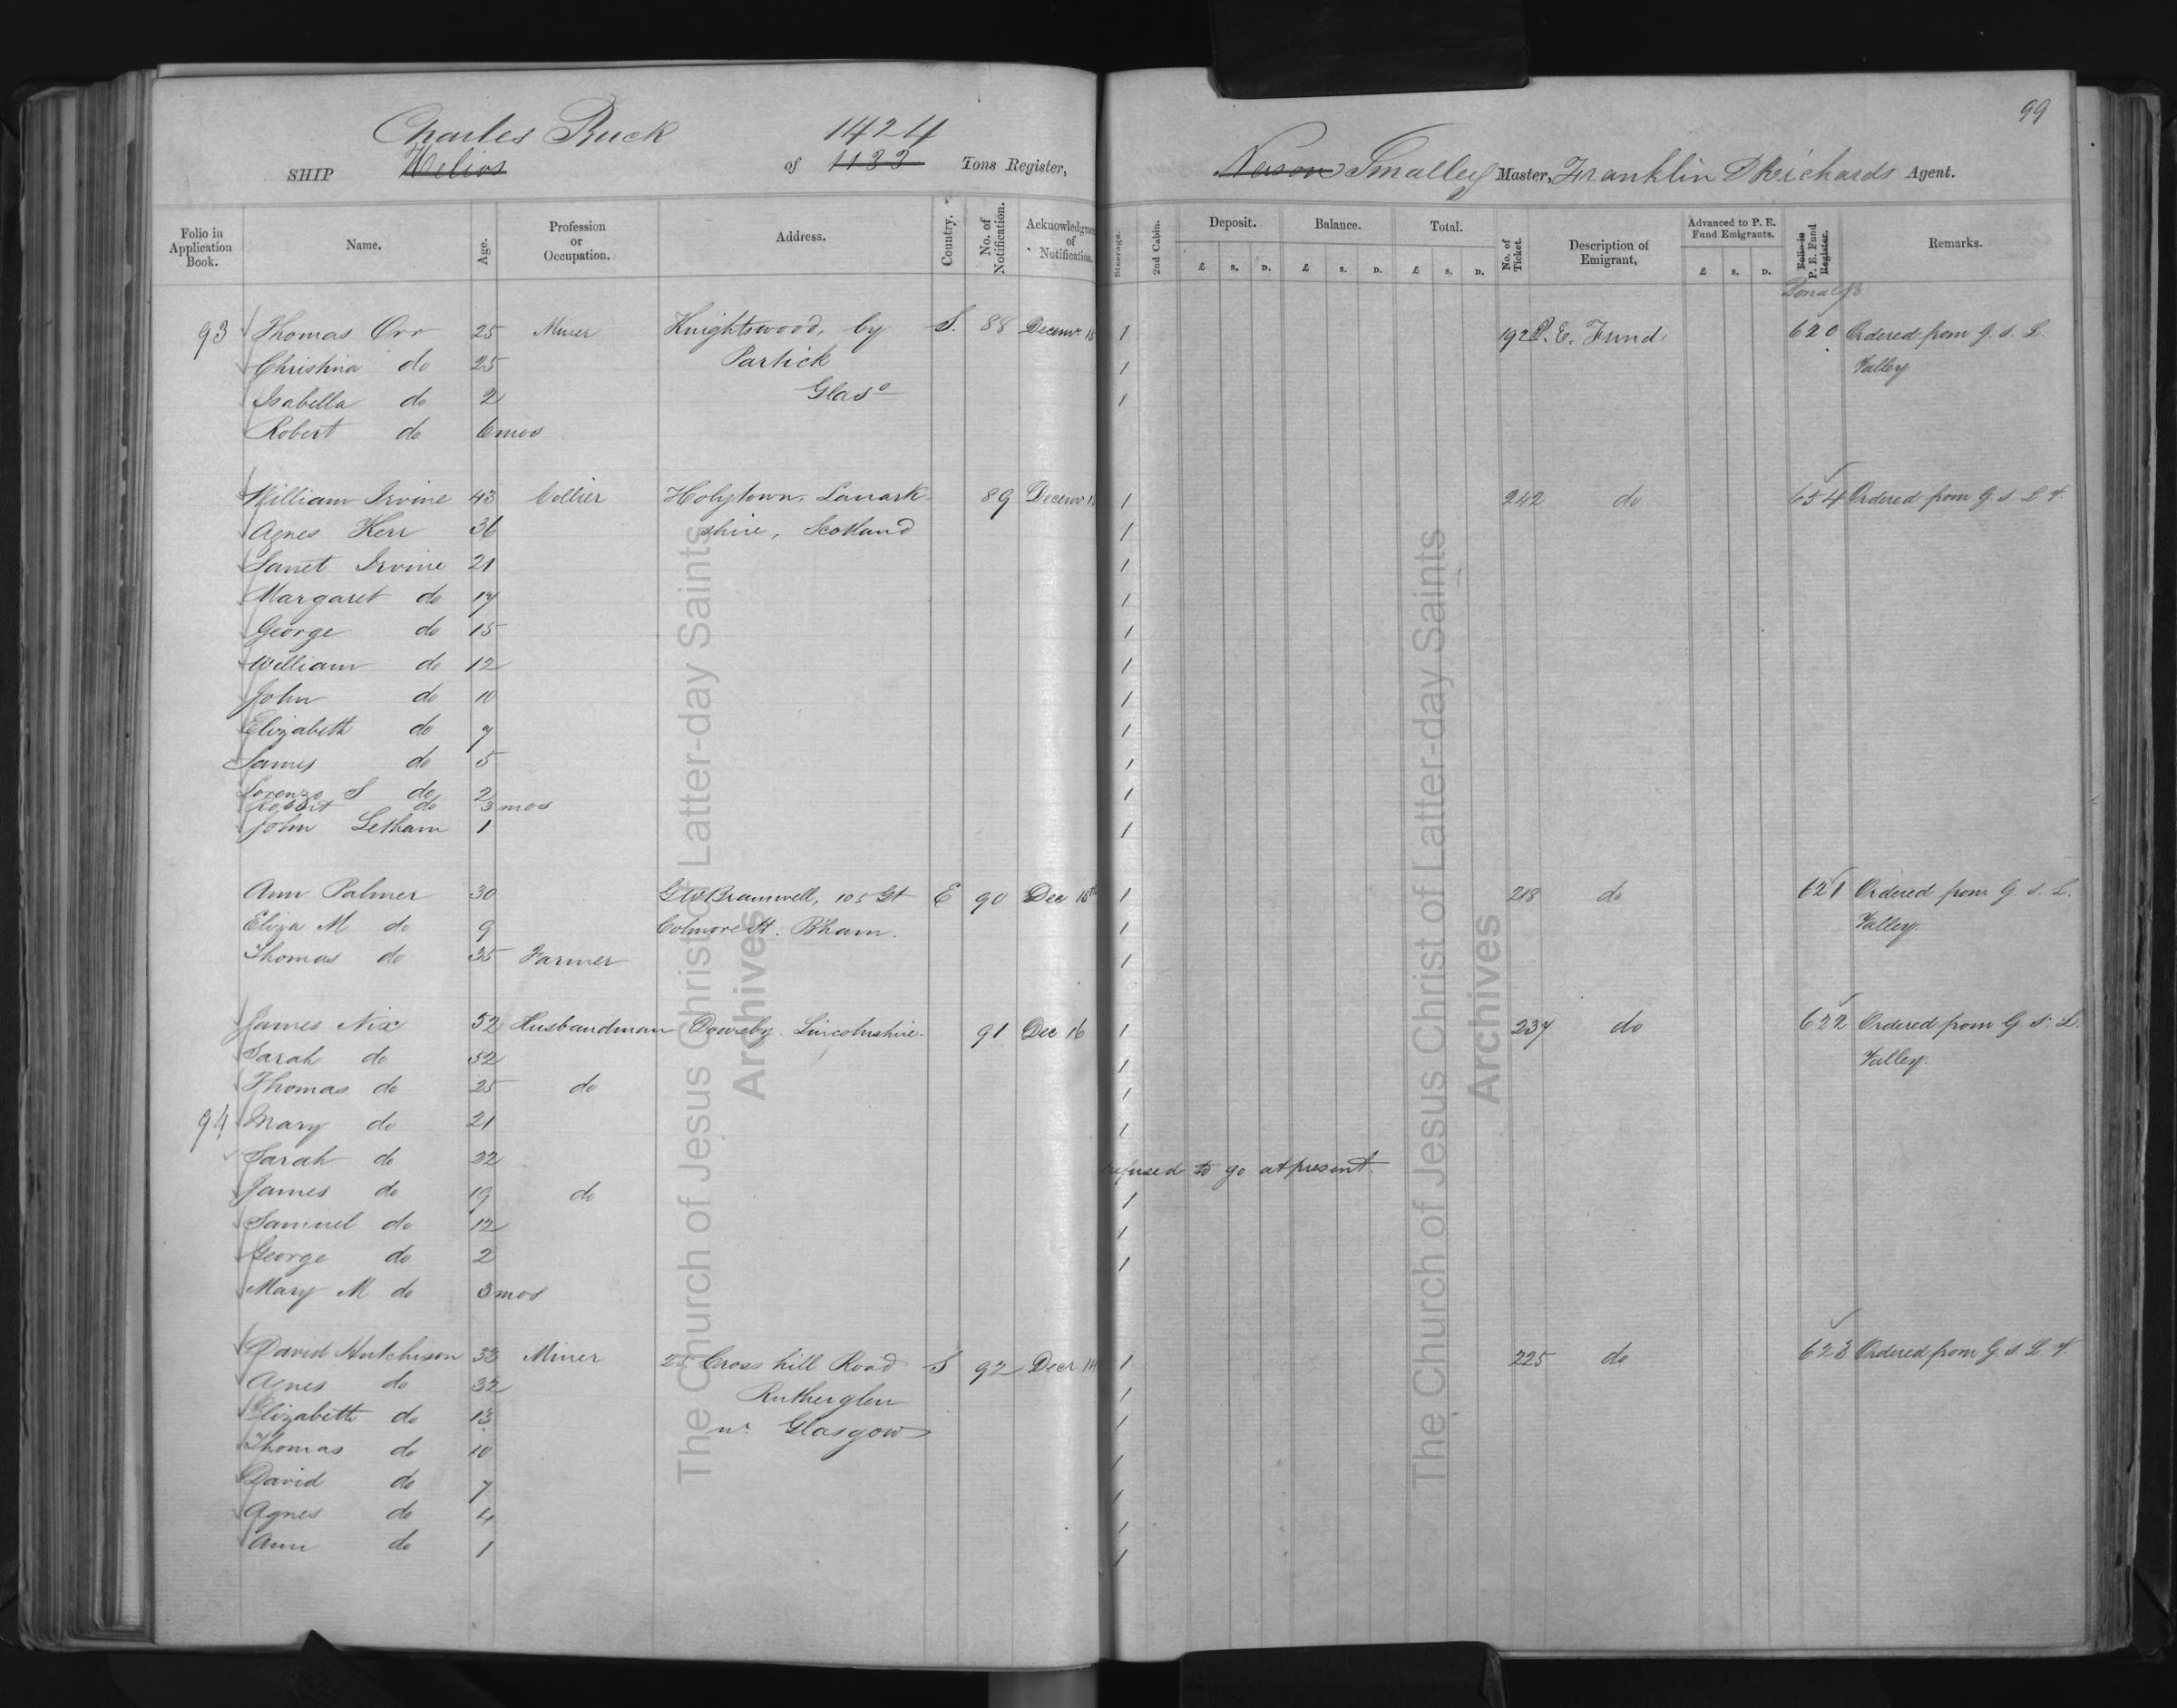 99
Charles Buck 1424
SHIP Helios of 1133 Tons Register, Nelson Smalley Master, Franklin D Richards Agent.
Folio in Application Book. Name. Age. Profession or Occupation. Address. Country. No. of Notification. Acknowledgment of Notification. Steerage. 2nd Cabin. Deposit. Balance. Total. No. of Ticket. Description of Emigrant, Advanced to P. E. Fund Emigrants. Folio in P. E. Fund Register. Remarks.
£ s. D. £ s. D. £ s. D. £ s. D.
93 Thomas Orr 25 Miner Knightswood, by S. 88 Decemr 15 1 192 P. E. Fund. 620 Ordered from G. S. L.
Christina do 25 Partick 1 Valley
Isabella do 2 Glaso 1
Robert do 6 mos
William Irvine 43 Collier Holytown, Lanark- 89 Decemr 1 242 do 654 Ordered from G. S. L. V.
Agnes Kerr 36 shire, Scotland 1
Janet Irvine 21 1
Margaret do 17 1
George do 15 1
William do 12 1
John do 10 1
Elizabeth do 7 1
James do 5 1
Lorenzo S do 2 1
Robert do 3 mos
John Letham 1 1
Ann Palmer 30 G W Bramwell, 105 Gt E 90 Dec 15th 1 218 do 621 Ordered from G. S. L.
Eliza M do 9 Colmore St. B'ham. 1 Valley.
Thomas do 35 Farmer 1
James Nix 52 Husbandman Dowsby. Lincolnshire. 91 Dec 16 1 237 do 622 Ordered from G. S. L.
Sarah do 52 1 Valley.
Thomas do 25 do 1
94 Mary do 21 1
Sarah do 22 refused to go at present
James do 19 do 1
Samuel do 12 1
George do 2 1
Mary M do 3 mos
David Hutchison 33 Miner 25 Cross hill Road S 92 Decr 14 1 225 do 623 Ordered from G. S. L. V.
Agnes do 32 Rutherglen 1
Elizabeth do 13 nr Glasgow 1
Thomas do 10 1
David do 7 1
Agnes do 4 1
Ann do 1 1
The Church of Jesus Christ of Latter-day Saints
Archives
The Church of Jesus Christ of Latter-day Saints
Archives